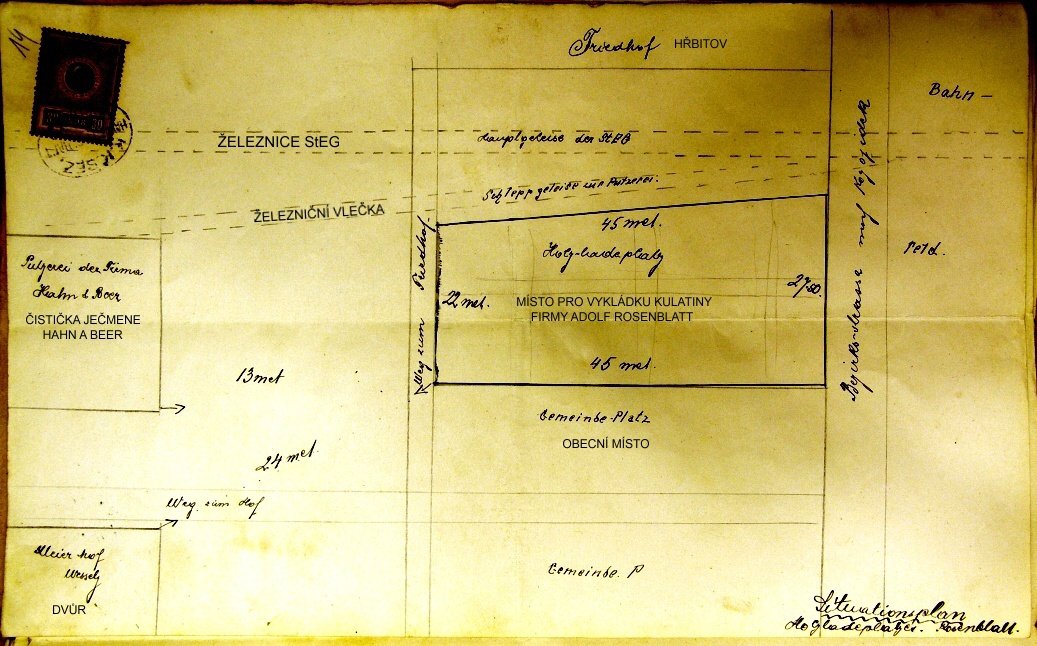 14
Friedhof HŘBITOV
Bahn —
ŽELEZNICE StEG
Hauptgeleise der StEG
Schleppgeleise zur Putzerei.
ŽELEZNIČNÍ VLEČKA
45 met.
Weg zum Friedhof
Holz-ladeplatz
Feld.
Putzerei der Firma
Hahn & Beer
22 met.
27.50.
MÍSTO PRO VYKLÁDKU KULATINY
FIRMY ADOLF ROSENBLATT
ČISTIČKA JEČMENE
HAHN A BEER
Bezirksstrasse nach
45 met.
13 met
Gemeinde-Platz
OBECNÍ MÍSTO
24 met.
Weg zum Hof
Meierhof
Wessely
Gemeinde. P
DVŮR
Situationsplan
Holzladeplatzes. Rosenblatt.